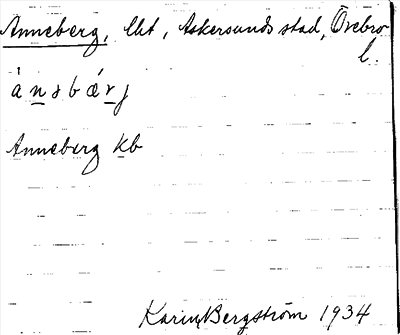 Anneberg, lht, Askersunds stad, Örebro
l.
ánsbǽrj
Anneberg kb
Karin Bergström 1934